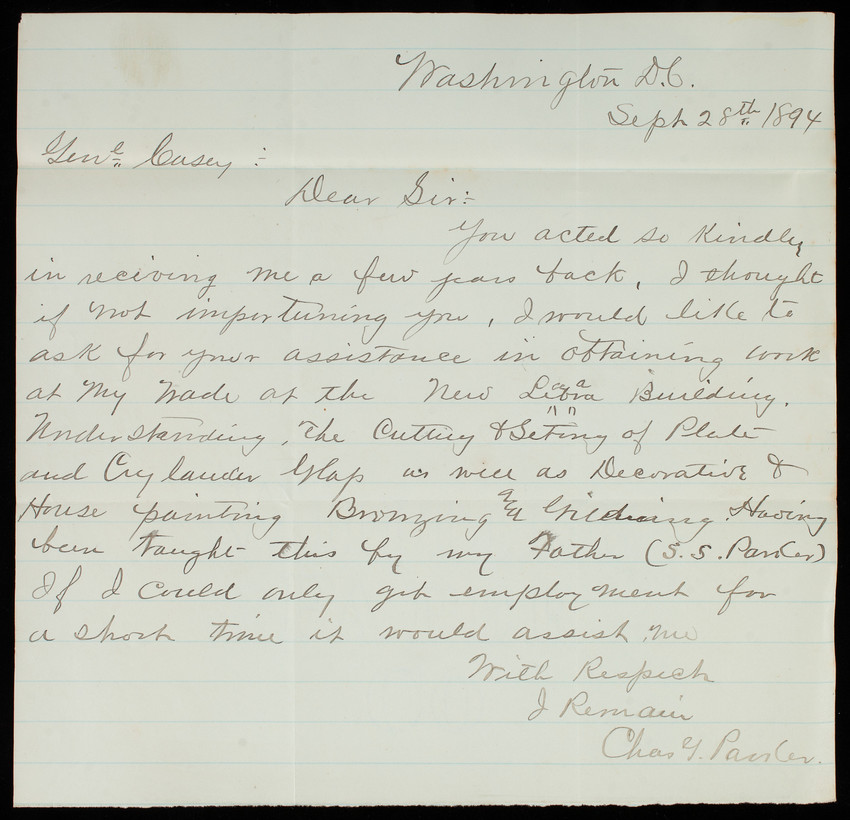 Washington D.C.
Sept 28th 1894
Genl Casey :
Dear Sir :
You acted so Kindly
in reciving me a few years back, I thought
if not importuning you, I would like to
ask for your assistance in obtaining work
at My Trade at the New Libra Building.
Understanding, The Cutting & Seting of Plate
and Crylander Glass as well as Decorative &
House painting Bronzing & Gilding. Having
been taught this by my Father (S. S. Parker)
If I could only get employment for
a short time it would assist me
With Respect
I Remain
Chas Parker.